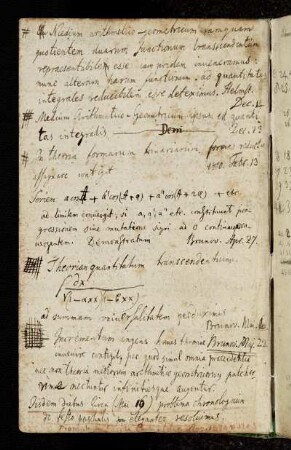 Medium arithmetico-geometricum tamquam
quotientem duarum functionum transscendentium
repraesentabilem esse iam pridem inveneramus:
nunc alteram harum functionum ad quantitates
integrales reducibilem esse deteximus. Helmst.
Dec. 14.
Medium Arithmetico-geometricum ipsum est quanti
tas integralis Dem Dec. 23
In theoria formarum trinariarum formas reductas
assignare contigit 1800. Febr. 13
Seriem a cos A + a' cos(A+φ) + a'' cos(A+2φ) + etc
ad limitem convergit, si a, a', a'' etc. constituant pro
gressionem sine mutatione signi ad 0 continuo con
vergentem Demonstratum Brunov. Apr. 27.
Theoriam quantitatum transcendentium
∫ dx
√(1-αxx)(1-βxx)
ad summam universalitatem perduximus
Brunov. Mai.
Incrementum ingens huius theoriae Brunov. Mai. 22
invenire contigit, per quod simul omnia praecedentia
nec non theoria mediorum arithmetico geometricorum pulcher
rime nectuntur infinitiesque augentur.
Iisdem diebus circa (Mai 16) problema chronologicum
de festo paschali eleganter resolvimus.